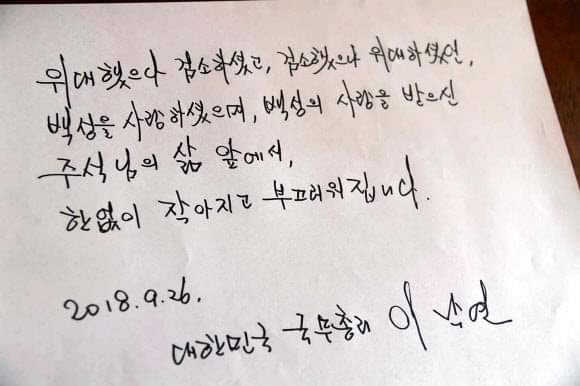 위대했으나 검소하셨고, 검소했으나 위대하셨던,
백성을 사랑하셨으며, 백성의 사랑을 받으신
주석님의 삶 앞에서,
한없이 작아지고 부끄러워집니다.
2018.9.26.
대한민국 국무총리 이낙연